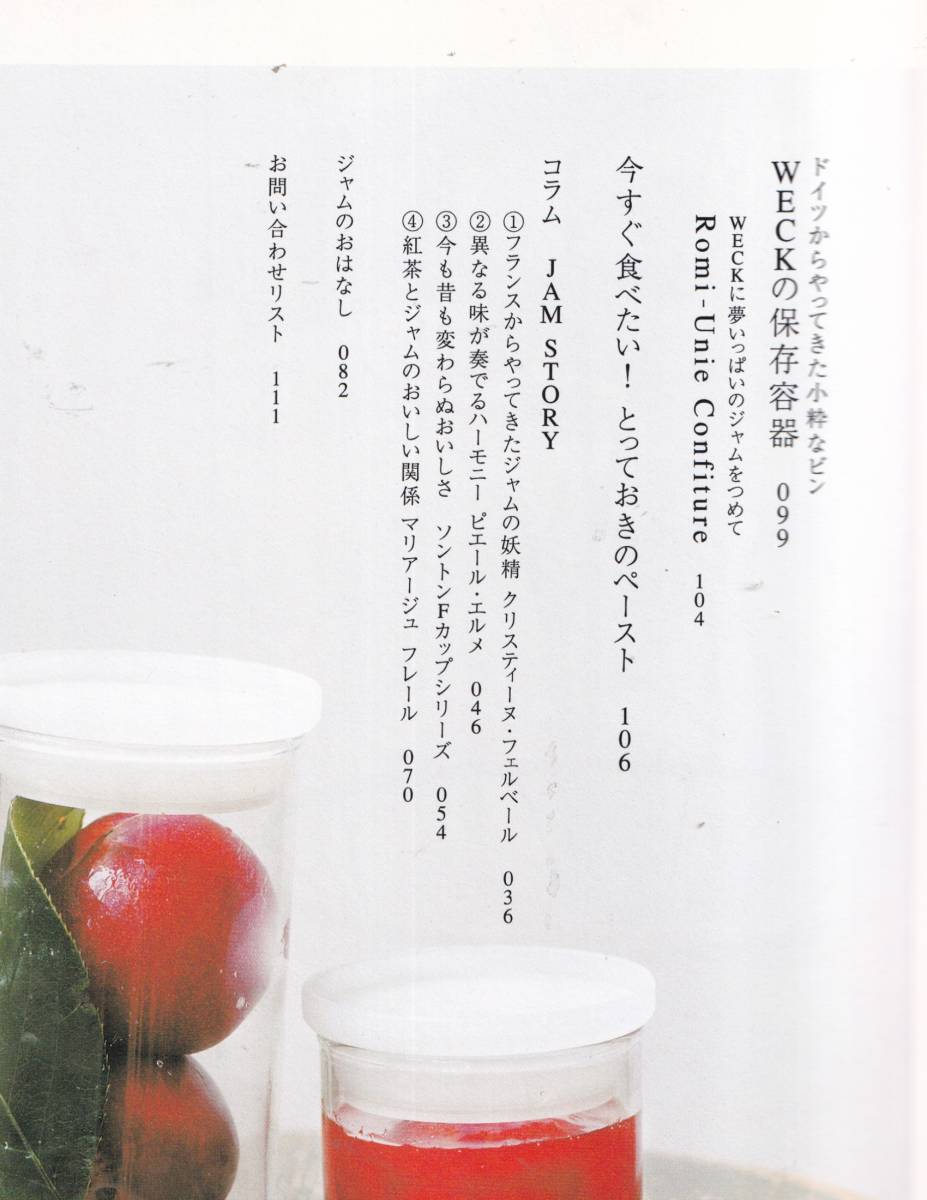 ドイツからやってきた小粋なビン
WECKの保存容器 099
WECKに夢いっぱいのジャムをつめて
Romi-Unie Confiture 104
今すぐ食べたい！とっておきのペースト 106
コラム JAM STORY
①フランスからやってきたジャムの妖精 クリスティーヌ・フェルベール 036
②異なる味が奏でるハーモニー ピエール・エルメ 046
③今も昔も変わらぬおいしさ ソントンFカップシリーズ 054
④紅茶とジャムのおいしい関係 マリアージュ フレール 070
ジャムのおはなし 082
お問い合わせリスト 111